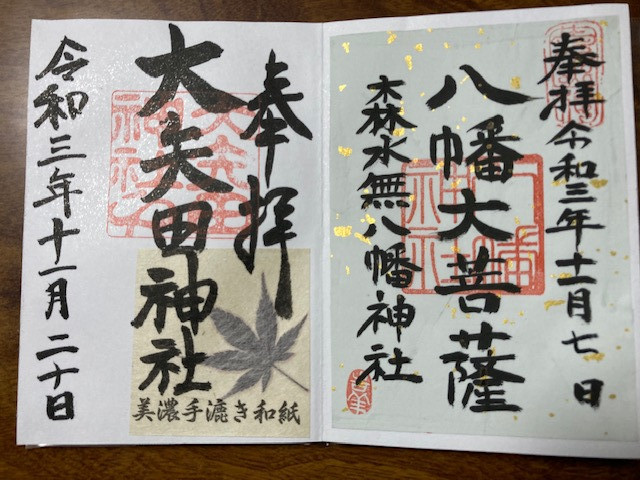 奉拝 令和三年十一月七日
八幡大菩薩
木林水無八幡神社
奉拝
大矢田神社
美濃手漉き和紙
令和三年十一月二十日